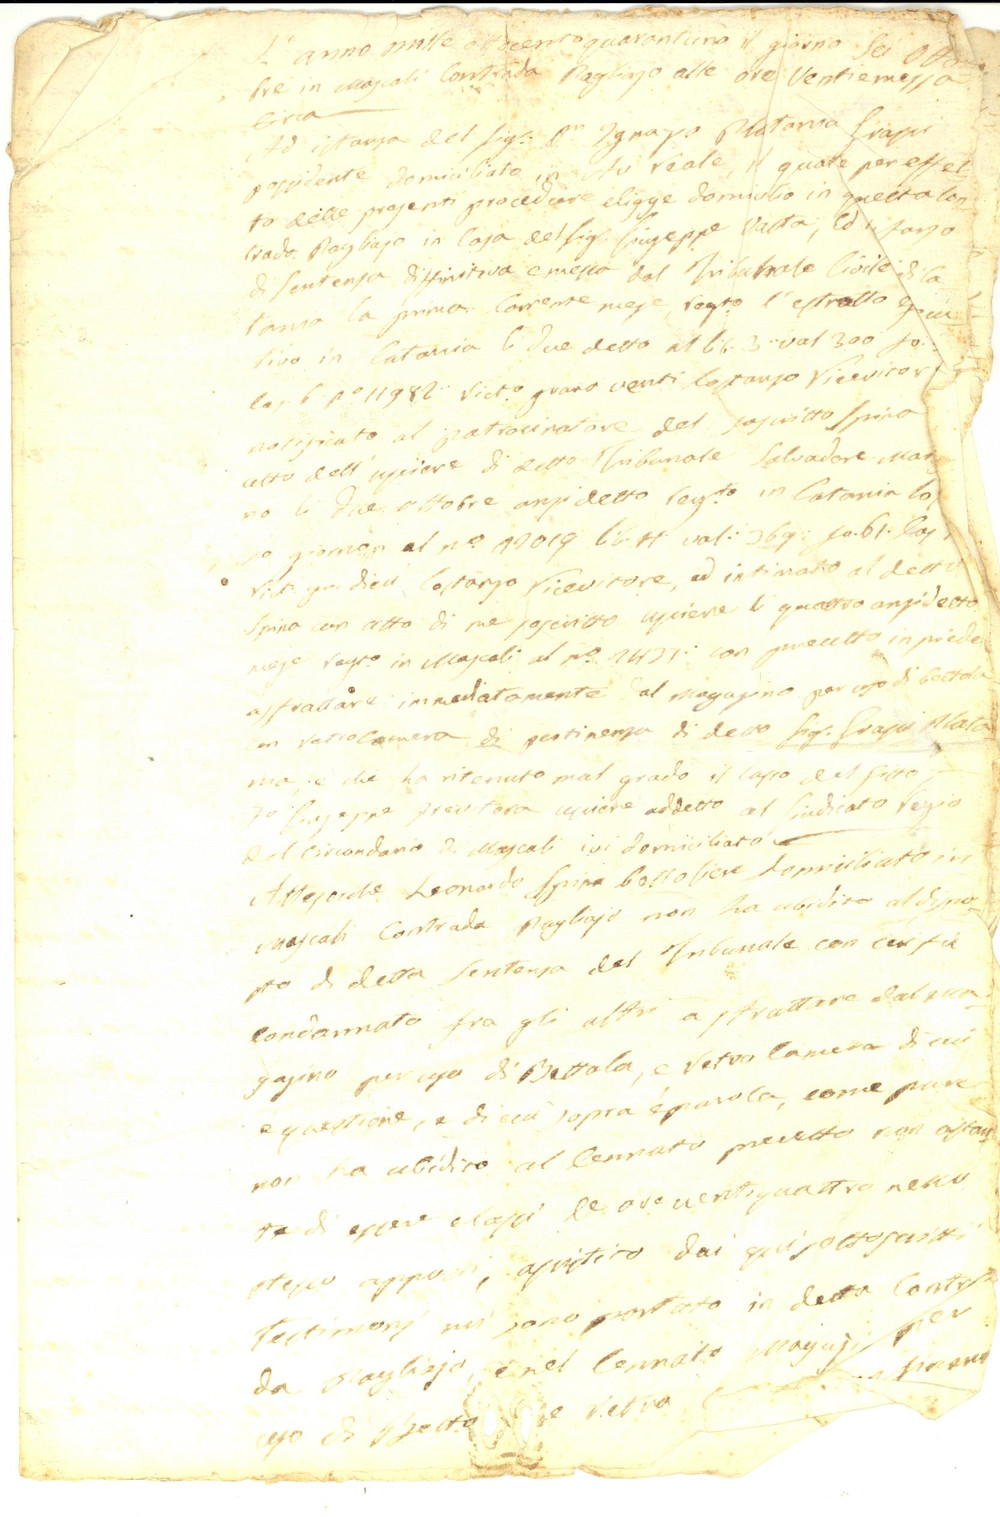 L'anno mille ottocento quarantuno il giorno sei Otto
bre in Mascali Contrada Pagliajo alle ore Ventiemezza
circa
Ad istanza del Sig.r D.n Ignazio Platania Grassi
possidente domiciliato in Aci reale, il quale per effet
to delle presenti procedure eligge domicilio in questa Con
trada Pagliajo in Casa del Sig. Giuseppe Vasta, Ed in forza
di Sentenza diffinitiva emessa dal Tribunale Civile di Ca
tania la prima corrente mese, regto l'estratto esecu
tivo in Catania li due detto al lib. 3 val 300 fo:
cas. 6 No 11982 Rict. grana venti Costanzo Ricevitore
notificato al patrocinatore del sascritto Spina
atto dell'usciere di detto Tribunale Salvadore Mar
no li due ottobre anzidetto regto in Catania lo
so giorno al no 12019 lib. val: 369: fo. 61: Cas
Rict. gra. dieci Costanzo Ricevitore, ed intimato al detto
Spina con atto di me soscritto usciere li quattro anzidetto
mese regto in Mascali al no. 1431: con precetto in piede
a sfrattare immediatamente dal Magazino per uso di bettola
con retrocamera di pertinenza di detto Sig. Grassi Plata
nia, e che ha ritenuto mal grado il lasso del fitto,
Io Giuseppe Previtera usciere addetto al Giudicato Regio
del Circondario di Mascali ivi domiciliato
Attesoche Leonardo Spina Bottegliere domiciliato in
Mascali Contrada Pagliajo non ha ubidito al dispo
sto di detta Sentenza del Tribunale con cui fu
condannato fra gli altri a sfrattare dal ma
gazino per uso di Bettola, e retro Camera di cui
e questione, e di cui sopra è parola, come pure
non ha ubidito al Cennato precetto non ostan
te di essere elassi le ore ventiquattro nello
stesso apposti, assistito dai qui sottoscritti
Testimonj mi sono portato in detta Contra
da Pagliajo, e nel Cennato Magazi per
uso di Betto e retro